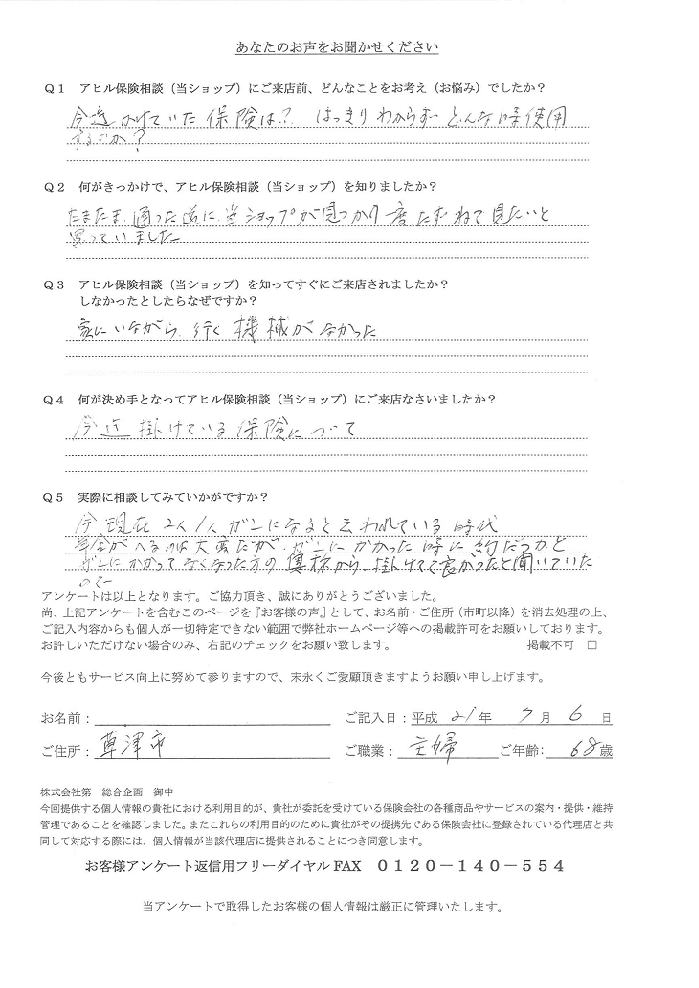 あなたのお声をお聞かせください
Q1 アヒル保険相談(当ショップ)にご来店前、どんなことをお考え(お悩み)でしたか?
今迄かけていた保険は?. はっきりわからず どんな時使用
するのか?
Q2 何がきっかけで、アヒル保険相談(当ショップ)を知りましたか?
たまたま、通った道に、当ショップが見つかり 一度たずねて見たいと
思っていました
Q3 アヒル保険相談(当ショップ)を知ってすぐにご来店されましたか?
しなかったとしたらなぜですか?
家にいながら、行く機械がなかった
Q4 何が決め手となってアヒル保険相談(当ショップ)にご来店なさいましたか?
今迄掛けている保険について
Q5 実際に相談してみていかがですか?
今現在 2人/人ガンになると云われている時代
年金がへるのは大変だが、ガンにかかった時に
ガンにかかってなくなった方の から、掛けてて良かったと聞いていた
ので
アンケートは以上となります。ご協力頂き、誠にありがとうございました。
尚、上記アンケートを含むこのページを『お客様の声』として、お名前・ご住所(市町以降)を消去処理の上、
ご記入内容からも個人が一切特定できない範囲で弊社ホームページ等への掲載許可をお願いしております。
お許しいただけない場合のみ、右記のチェックをお願い致します。 掲載不可 □
今後ともサービス向上に努めて参りますので、末永くご愛顧頂きますようお願い申し上げます。
お名前: ご記入日:平成 21年 7月 6日
ご住所: 草津市 ご職業: 主婦 ご年齢: 68歳
株式会社第一総合企画 御中
今回提供する個人情報の貴社における利用目的が、貴社が委託を受けている保険会社の各種商品やサービスの案内・提供・維持
管理であることを確認しました。またこれらの利用目的のために貴社がその提携先である保険会社に登録されている代理店と共
同して対応する際には、個人情報が当該代理店に提供されることにつき同意します。
お客様アンケート返信用フリーダイヤル FAX 0120-140-554
当アンケートで取得したお客様の個人情報は厳正に管理いたします。